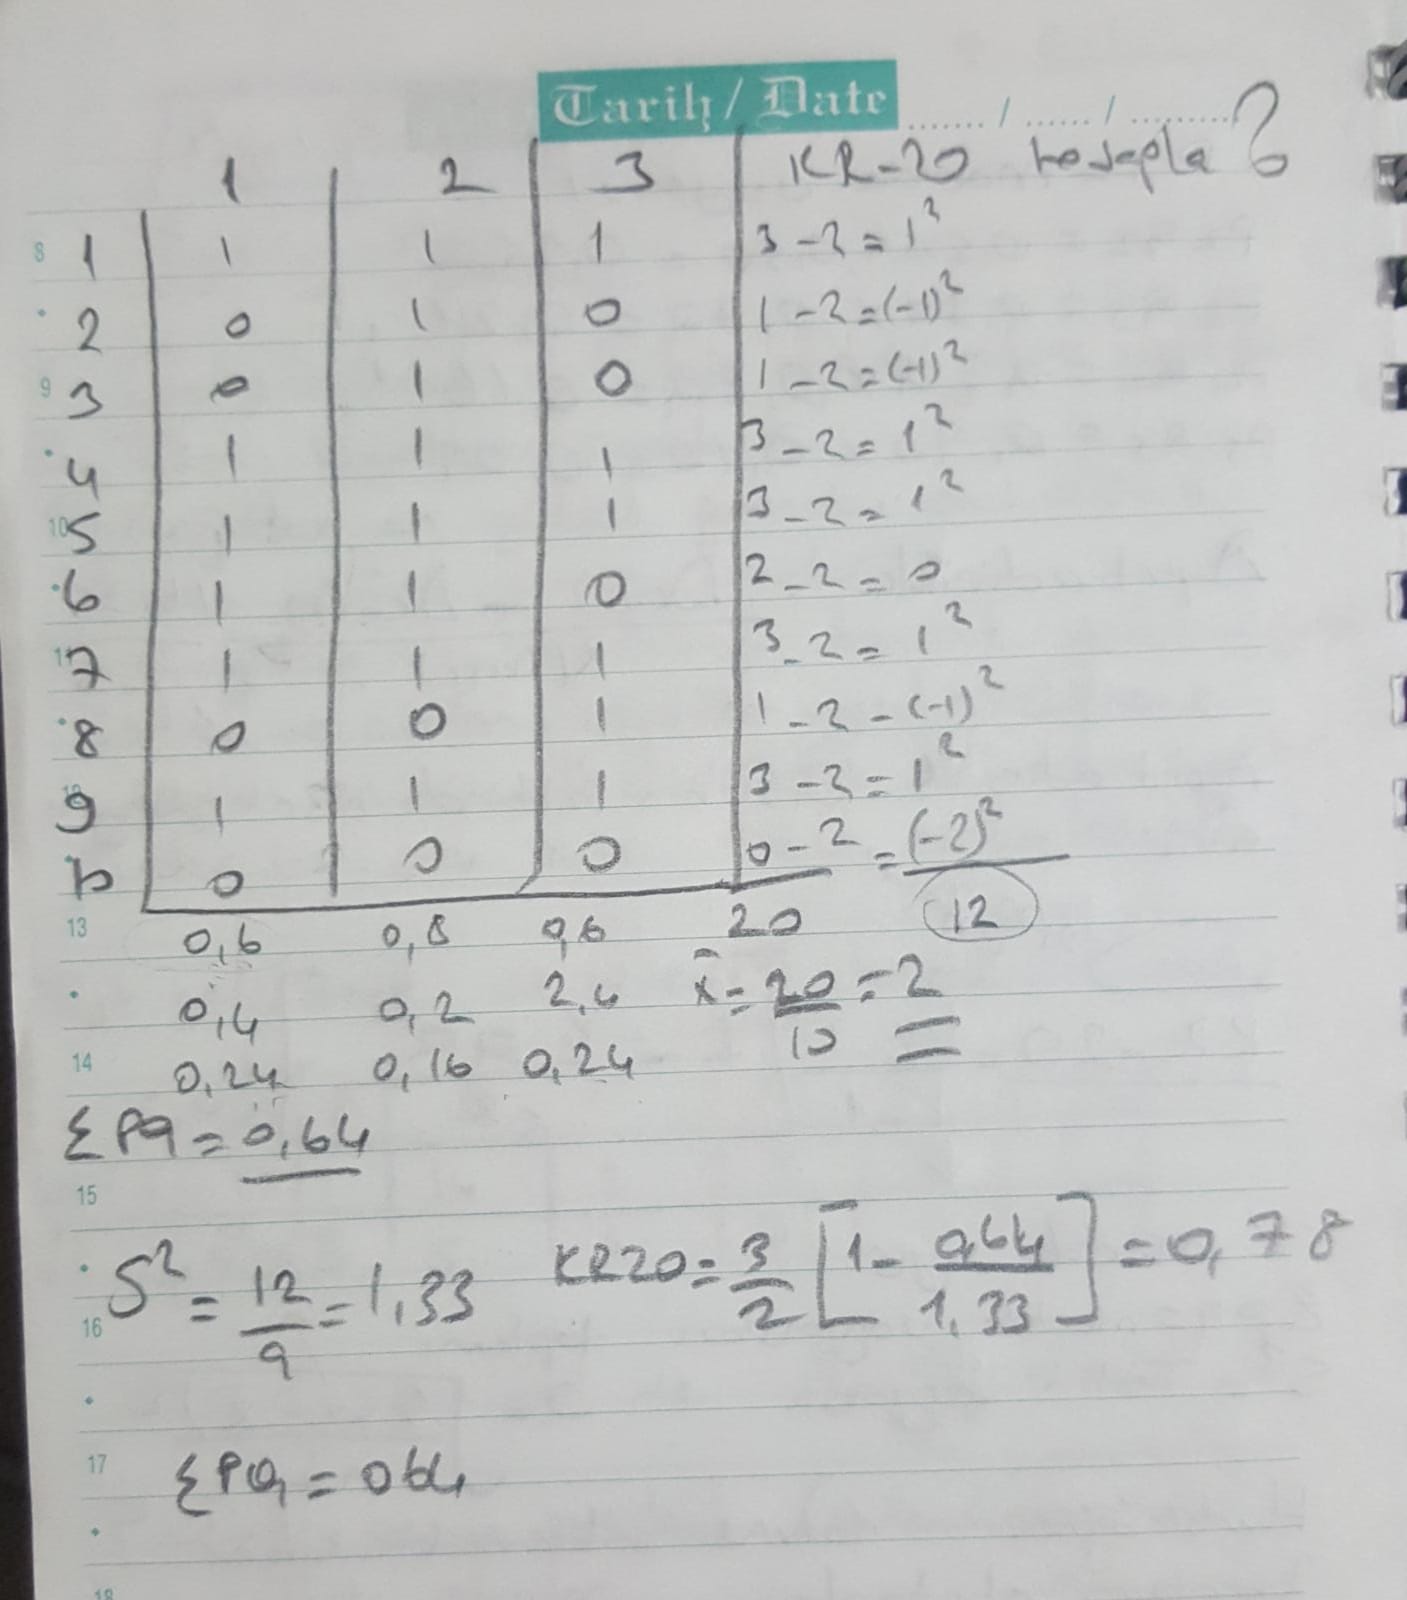 Tarih / Date ....... / ...... / .........
1 2 3 KR-20 hesapla ?
8 1 1 1 1 3-2=1²
2 0 1 0 1-2=(-1)²
9 3 0 1 0 1-2=(-1)²
4 1 1 1 3-2=1²
10 5 1 1 1 3-2=1²
6 1 1 0 2-2=0
7 1 1 1 3-2=1²
8 0 0 1 1-2-(-1)²
9 1 1 1 3-2=1²
10 0 0 0 0-2=(-2)²
13 0,6 0,8 0,6 20 12
0,4 0,2 2,4 x̄=20/10=2
14 0,24 0,16 0,24
ΣPq=0,64
15
16 S²=12/9=1,33 KR20=3/2[1-0,64/1,33]=0,78
17 ΣPq=064
18